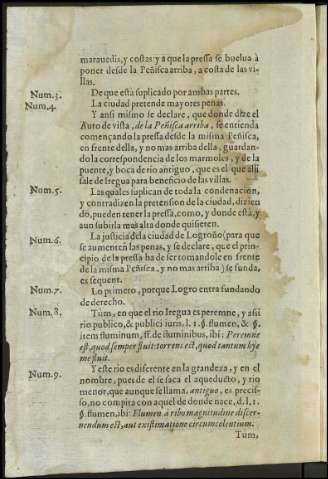 marauedis, y costas: y a que la pressa se buelua à
poner desde la Peñisca arriba, a costa de las vi-
llas.
Num.3. De que està suplicado por ambas partes.
Num.4. La ciudad pretende mayores penas.
Y ansi mismo se declare, que donde dize el
Auto de vista, de la Peñisca arriba, se entienda
començando la pressa desde la misma Peñisca,
en frente della, y no mas arriba della, guardan-
do la correspondencia de los marmoles, y de la
puente, y boca de rio antiguo, que es el que alli
sale de Iregua para beneficio de las villas.
Num.5. Las quales suplican de toda la condenacion,
y contradizen la pretension de la ciudad, dizien
do, pueden tener la pressa, como, y donde està, y
aun subirla mas alta donde quisieren.
Num.6. La justicia de la ciudad de Logroño (para que
se aumenten las penas, y se declare, que el prin-
cipio de la pressa ha de ser tomandole en frente
de la misma Peñisca, y no mas arriba) se funda,
ex sequent.
Num.7. Lo primero, porque Logroño entra fundando
de derecho.
Num.8. Tum, en que el rio Iregua es peremne, y assi
rio publico, & publici iuris. l. 1. §. flumen, & §.
item fluminum, ff. de fluminibus, ibi: Peremne
est, quod semper fluit: torrens est, quod tantum hye
me fluit.
Num.9. Y este rio es diferente en la grandeza, y en el
nombre, pues de el se saca el aqueducto, y rio
menor, que aunque se llama antiguo, es precis-
so, no compita con aquel de donde nace, d. l. 1.
§. flumen, ibi: Flumen à ribo magnitudine discer-
nendum est, aut existimatione circumcolentium.
Tum,